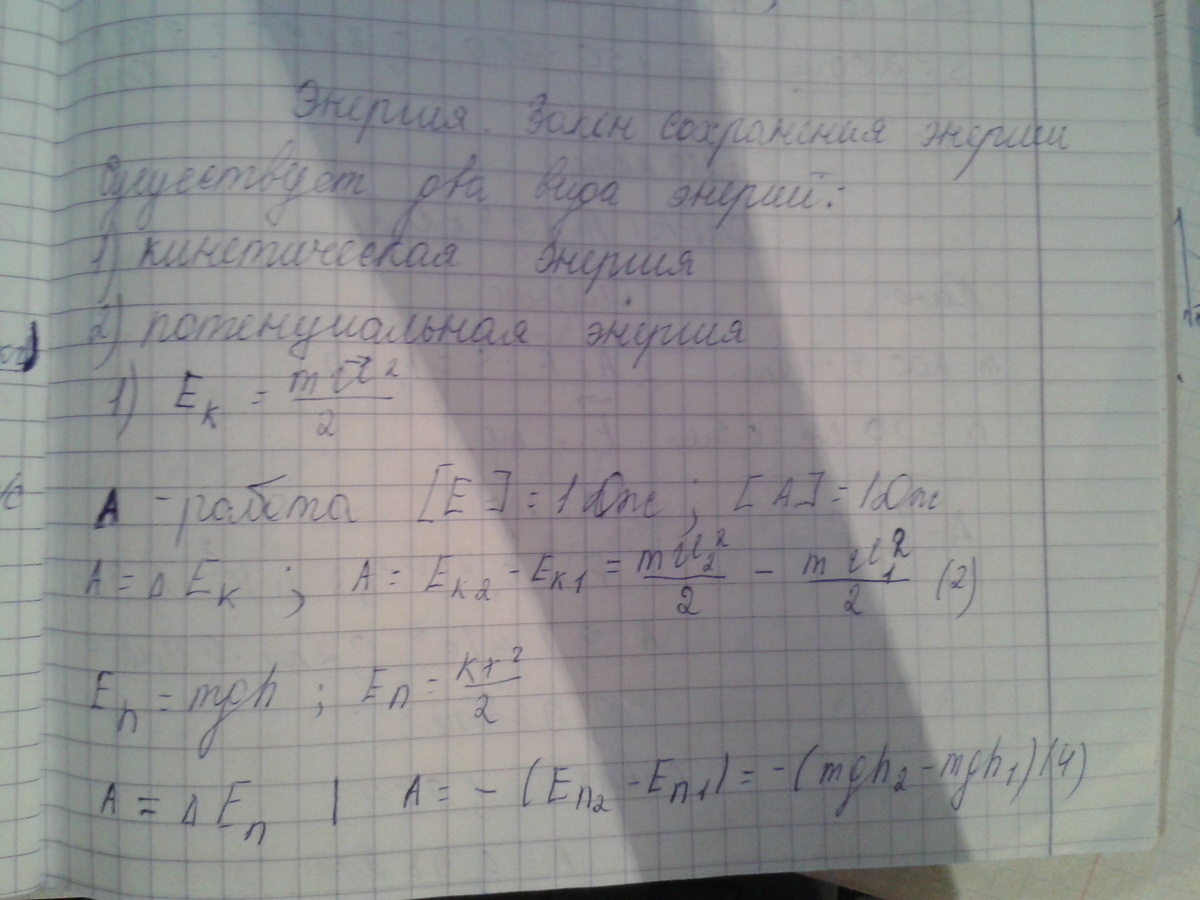 Энергия. Закон сохранения энергии
Существует два вида энергий:
1) кинетическая энергия
2) потенциальная энергия
1) Eк = mv⃗²/2
A - работа [E] = 1 Дж ; [A] = 1 Дж
A = Δ Eк ; A = Eк2 - Eк1 = mv₂²/2 - mv₁²/2 (2)
Eп = mgh ; Eп = kx²/2
A = Δ Eп | A = - (Eп2 - Eп1) = -(mgh₂ - mgh₁) (4)